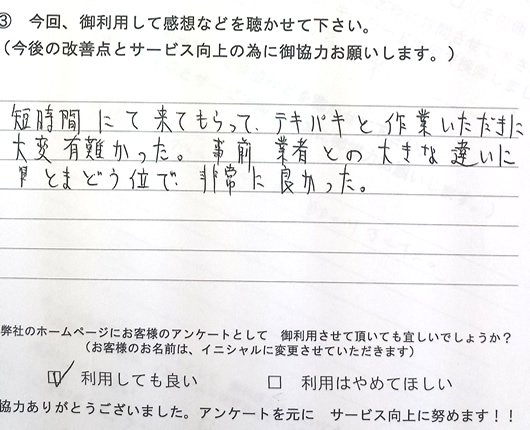 ③ 今回、御利用して感想などを聴かせて下さい。
(今後の改善点とサービス向上の為に御協力お願いします。)
短時間にて来てもらって、テキパキと作業いただきに
大変有難かった。事前業者との大きな違いに
とまどう位で、非常に良かった。
弊社のホームページにお客様のアンケートとして 御利用させて頂いても宜しいでしょうか?
(お客様のお名前は、イニシャルに変更させていただきます)
☑ 利用しても良い □ 利用はやめてほしい
協力ありがとうございました。アンケートを元に サービス向上に努めます!!